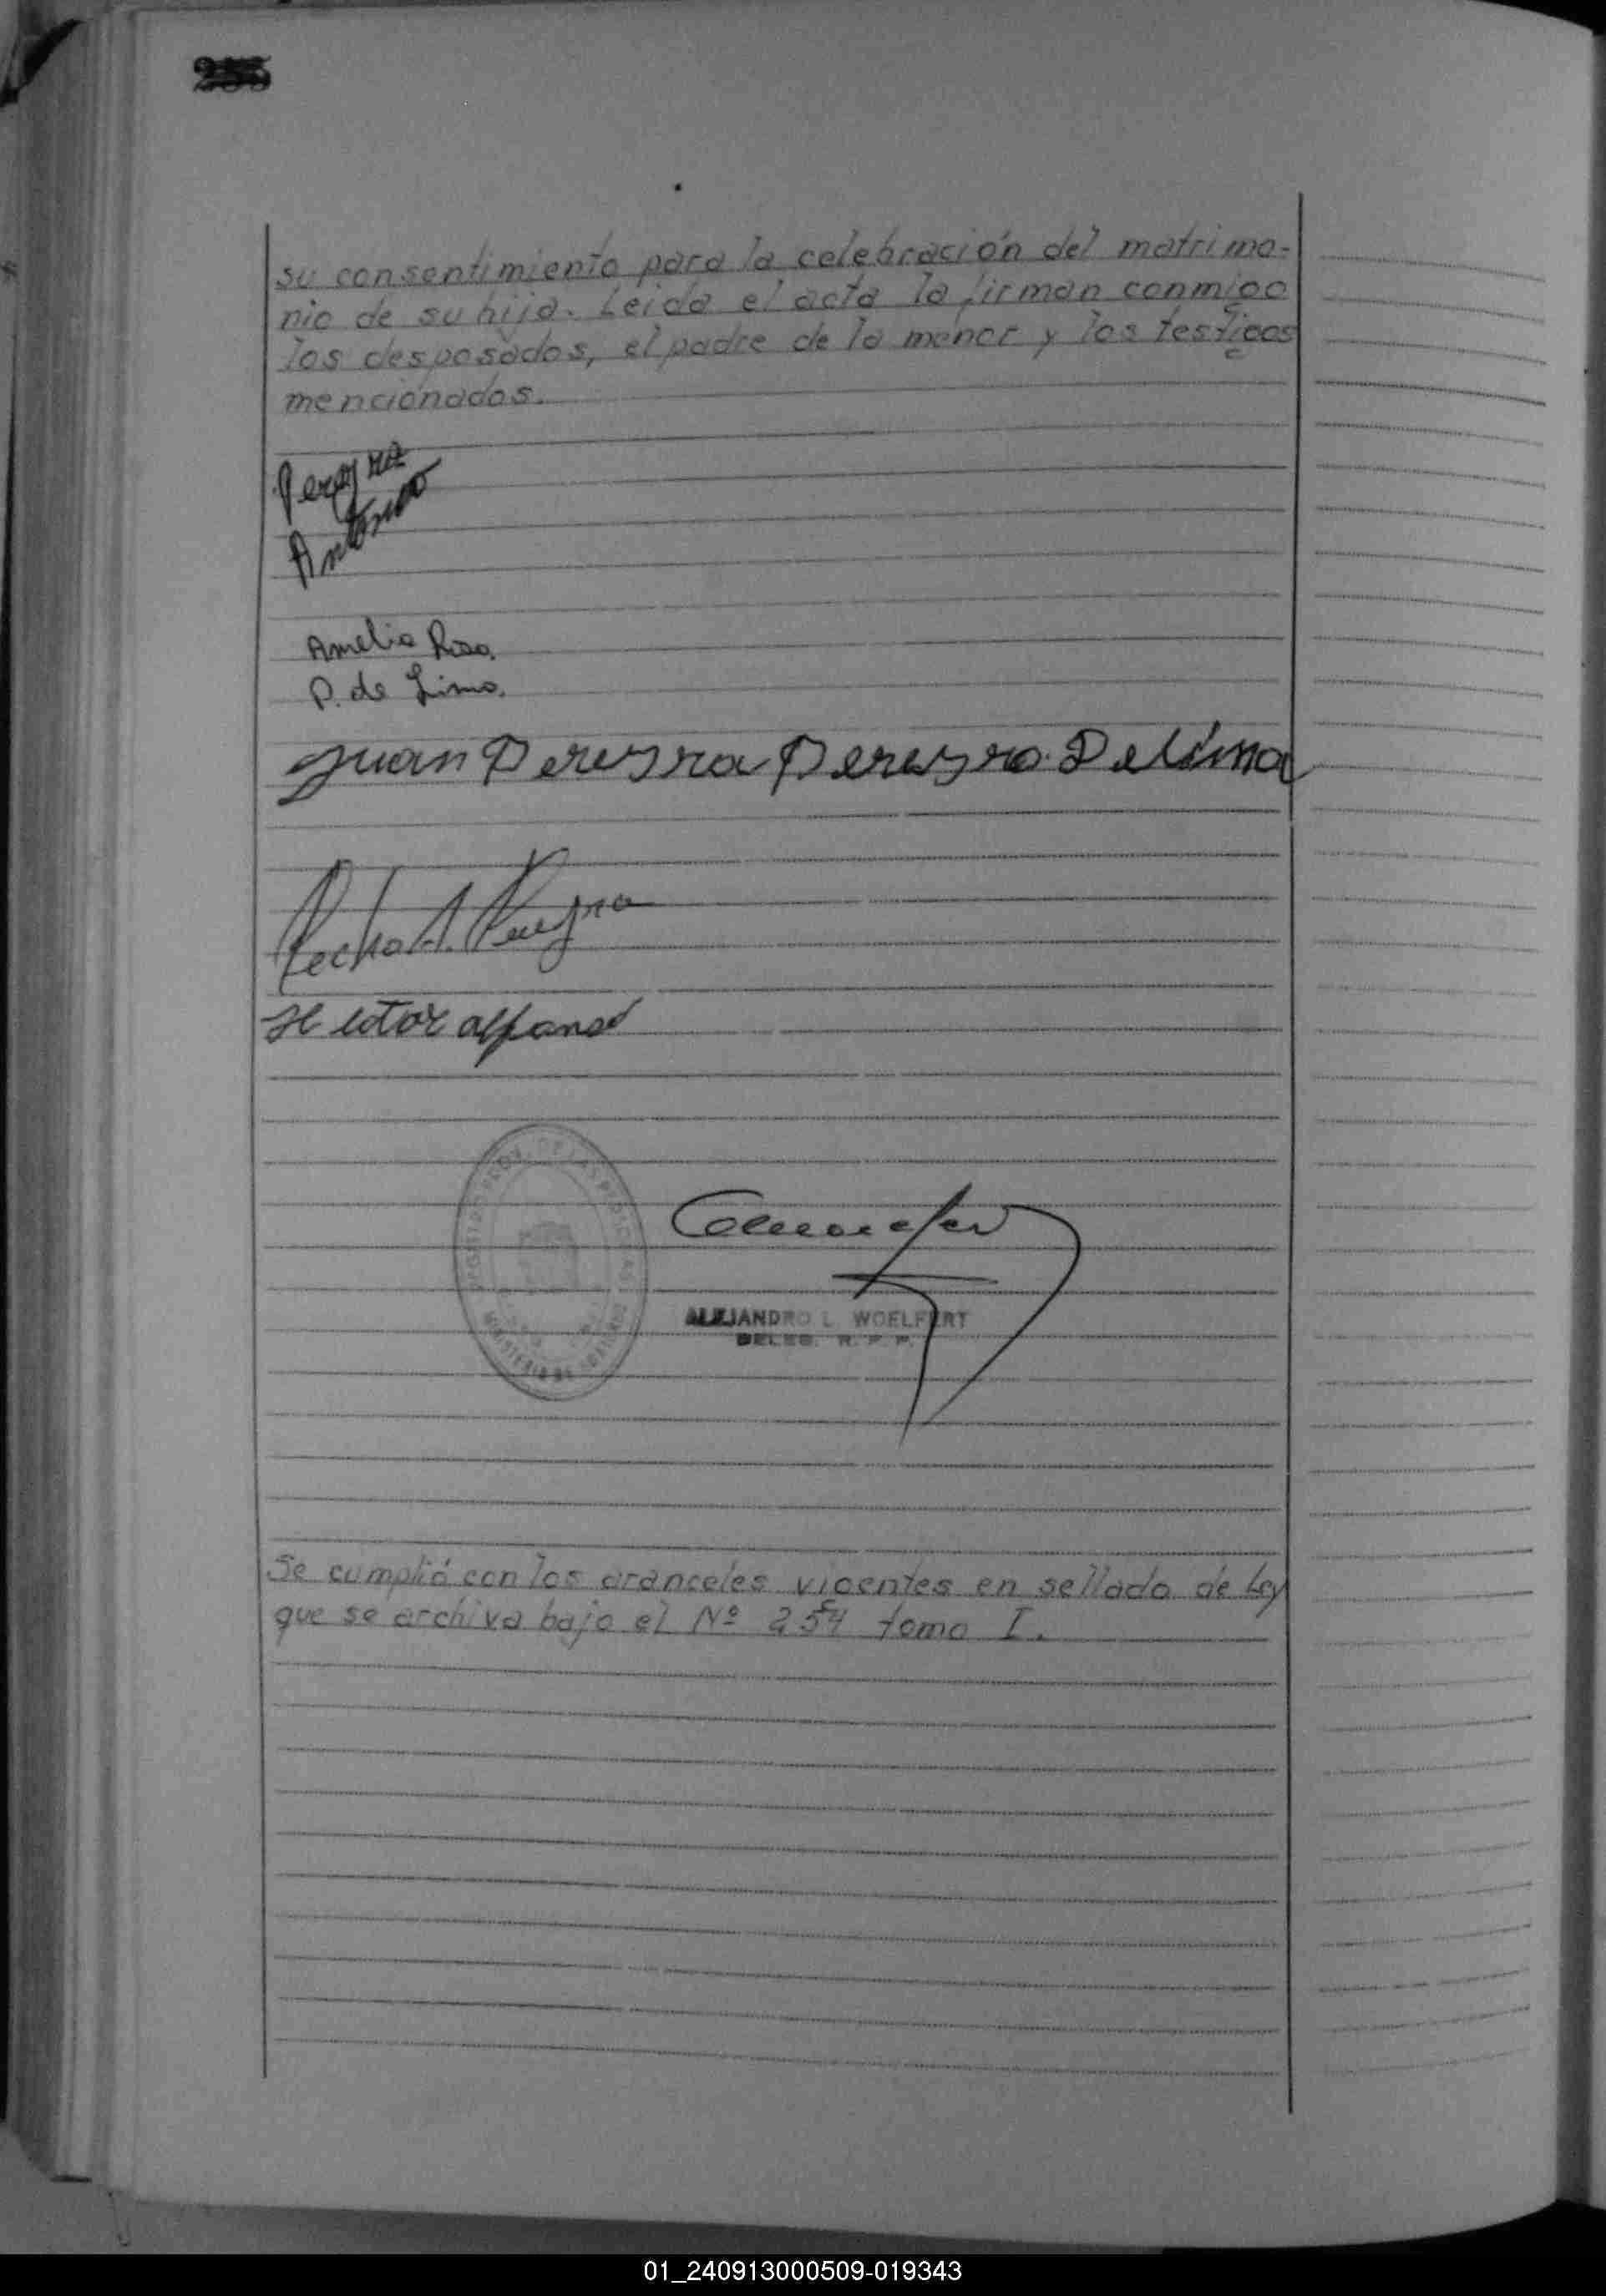 235
su consentimiento para la celebración del matrimo-
nio de su hija. Leida el acta la firman conmigo
los desposados, el padre de la menor y los testigos
mencionados.
Pereyra
Antonio
Amelia Rosa.
P. de Lima.
Juan Pereyra Pereyra De Lima
Pereyra
Hector alfonso
MINISTERIO DE
ALEJANDRO L. WOELFERT
DELEG. R. P. P.
Se cumplió con los aranceles vigentes en sellado de Ley
que se archiva bajo el Nº 254 tomo I.
01_240913000509-019343